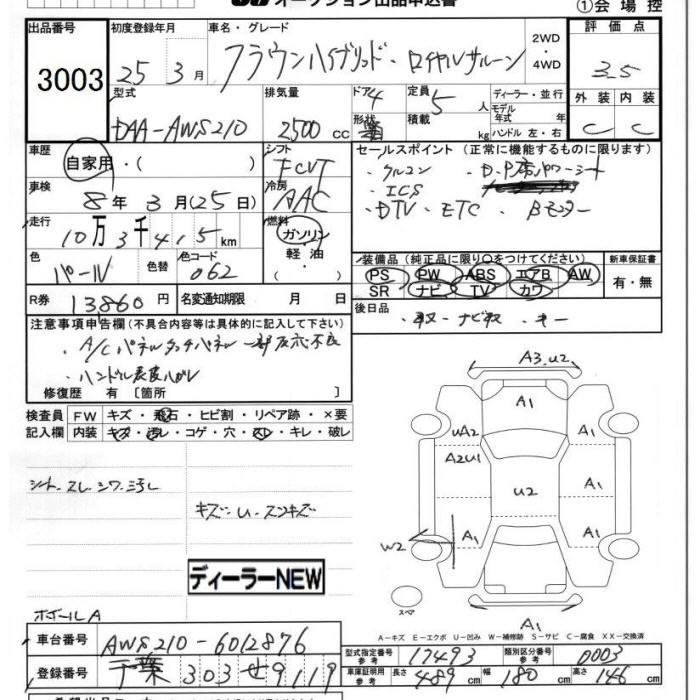 オークション出品申込書
①会場控
出品番号
3003
初度登録年月
25年3月
車名・グレード
クラウンハイブリッド・ロイヤルサルーン
2WD・4WD
評価点
3.5
型式
DAA-AWS210
排気量
2500cc
ドア
4
形状
定員
5人
積載
kg
ディーラー・並行
モデル年式 年式
ハンドル 左・右
外装
C
内装
C
車歴
自家用・( )
シフト
FCVT
車検
8年3月(25日)
冷房
AAC
走行
10万3千415km
燃料
ガソリン
軽油
( )
色
パール
色替
色コード
062
R券
13860円
名変通知期限 月 日
セールスポイント(正常に機能するものに限ります)
・クルコン ・D.P席パワーシート
・ICS
・DTV ・ETC ・Bモニター
装備品(純正品に限り○をつけてください)
PS PW ABS エアB AW
SR ナビ TV カワ
新車保証書
有・無
後日品
・取 ・ナビ取 ・キー
注意事項申告欄(不具合内容等は具体的に記入して下さい)
・A/Cパネルタッチパネル一部反応不良
・ハンドル表皮ハガレ
修復歴 有〔箇所 〕
検査員記入欄
FW キズ・飛石・ヒビ割・リペア跡・×要
内装 キズ・汚レ・コゲ・穴・スレ・キレ・破レ
シート、スレ、シワ、汚レ
キズ・U・スンキズ
ディーラーNEW
A3.U2
A1
UA2
A2U1
A1
U2
A1
A1
W2
A1
スペア
A1
A-キズ E-エクボ U-凹み W-補修跡 S-サビ C-腐食 XX-交換済
車台番号
AWS210-6012876
登録番号
千葉303せ9119
型式指定番号
参考
17493
類別区分番号
参考
0003
車庫証明用
参考
長さ
489cm
幅
180cm
高さ
146cm